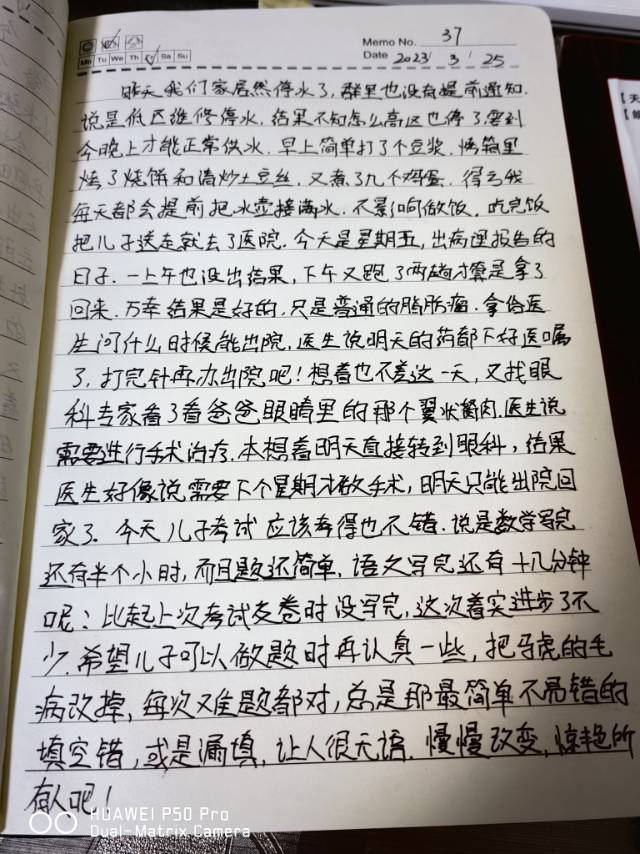 Memo No. 37
Mo Tu We Th Fr Sa Su
Date 2023 / 3 / 25
昨天我们家居然停水了,群里也没有提前通知.
说是低区维修停水,结果不知怎么高区也停了要到
今晚上才能正常供水.早上简单打了个豆浆.烤箱里
烤了烧饼和清炒土豆丝.又煮了几个鸡蛋.得亏我
每天都会提前把水壶接满水.不影响做饭.吃完饭
把儿子送走就去了医院.今天是星期五,出病理报告的
日子.一上午也没出结果,下午又跑了两趟才算是拿了
回来.万幸结果是好的.只是普通的脂肪瘤.拿给医
生问什么时候能出院,医生说明天的药都下好医嘱
了,打完针再办出院吧!想着也不差这一天,又找眼
科专家看了看爸爸眼睛里的那个翼状胬肉.医生说
需要进行手术治疗.本想着明天直接转到眼科,结果
医生好像说需要下个星期才做手术,明天只能出院回
家了.今天儿子考试应该考得也不错.说是数学写完
还有半个小时,而且题还简单,语文写完还有十几分钟
呢;比起上次考试交卷时没写完,这次着实进步了不
少.希望儿子可以做题时再认真一些,把马虎的毛
病改掉,每次难题都对,总是那最简单不易错的
填空错,或是漏填,让人很无语.慢慢改变,惊艳所
有人吧!
HUAWEI P50 Pro
Dual-Matrix Camera